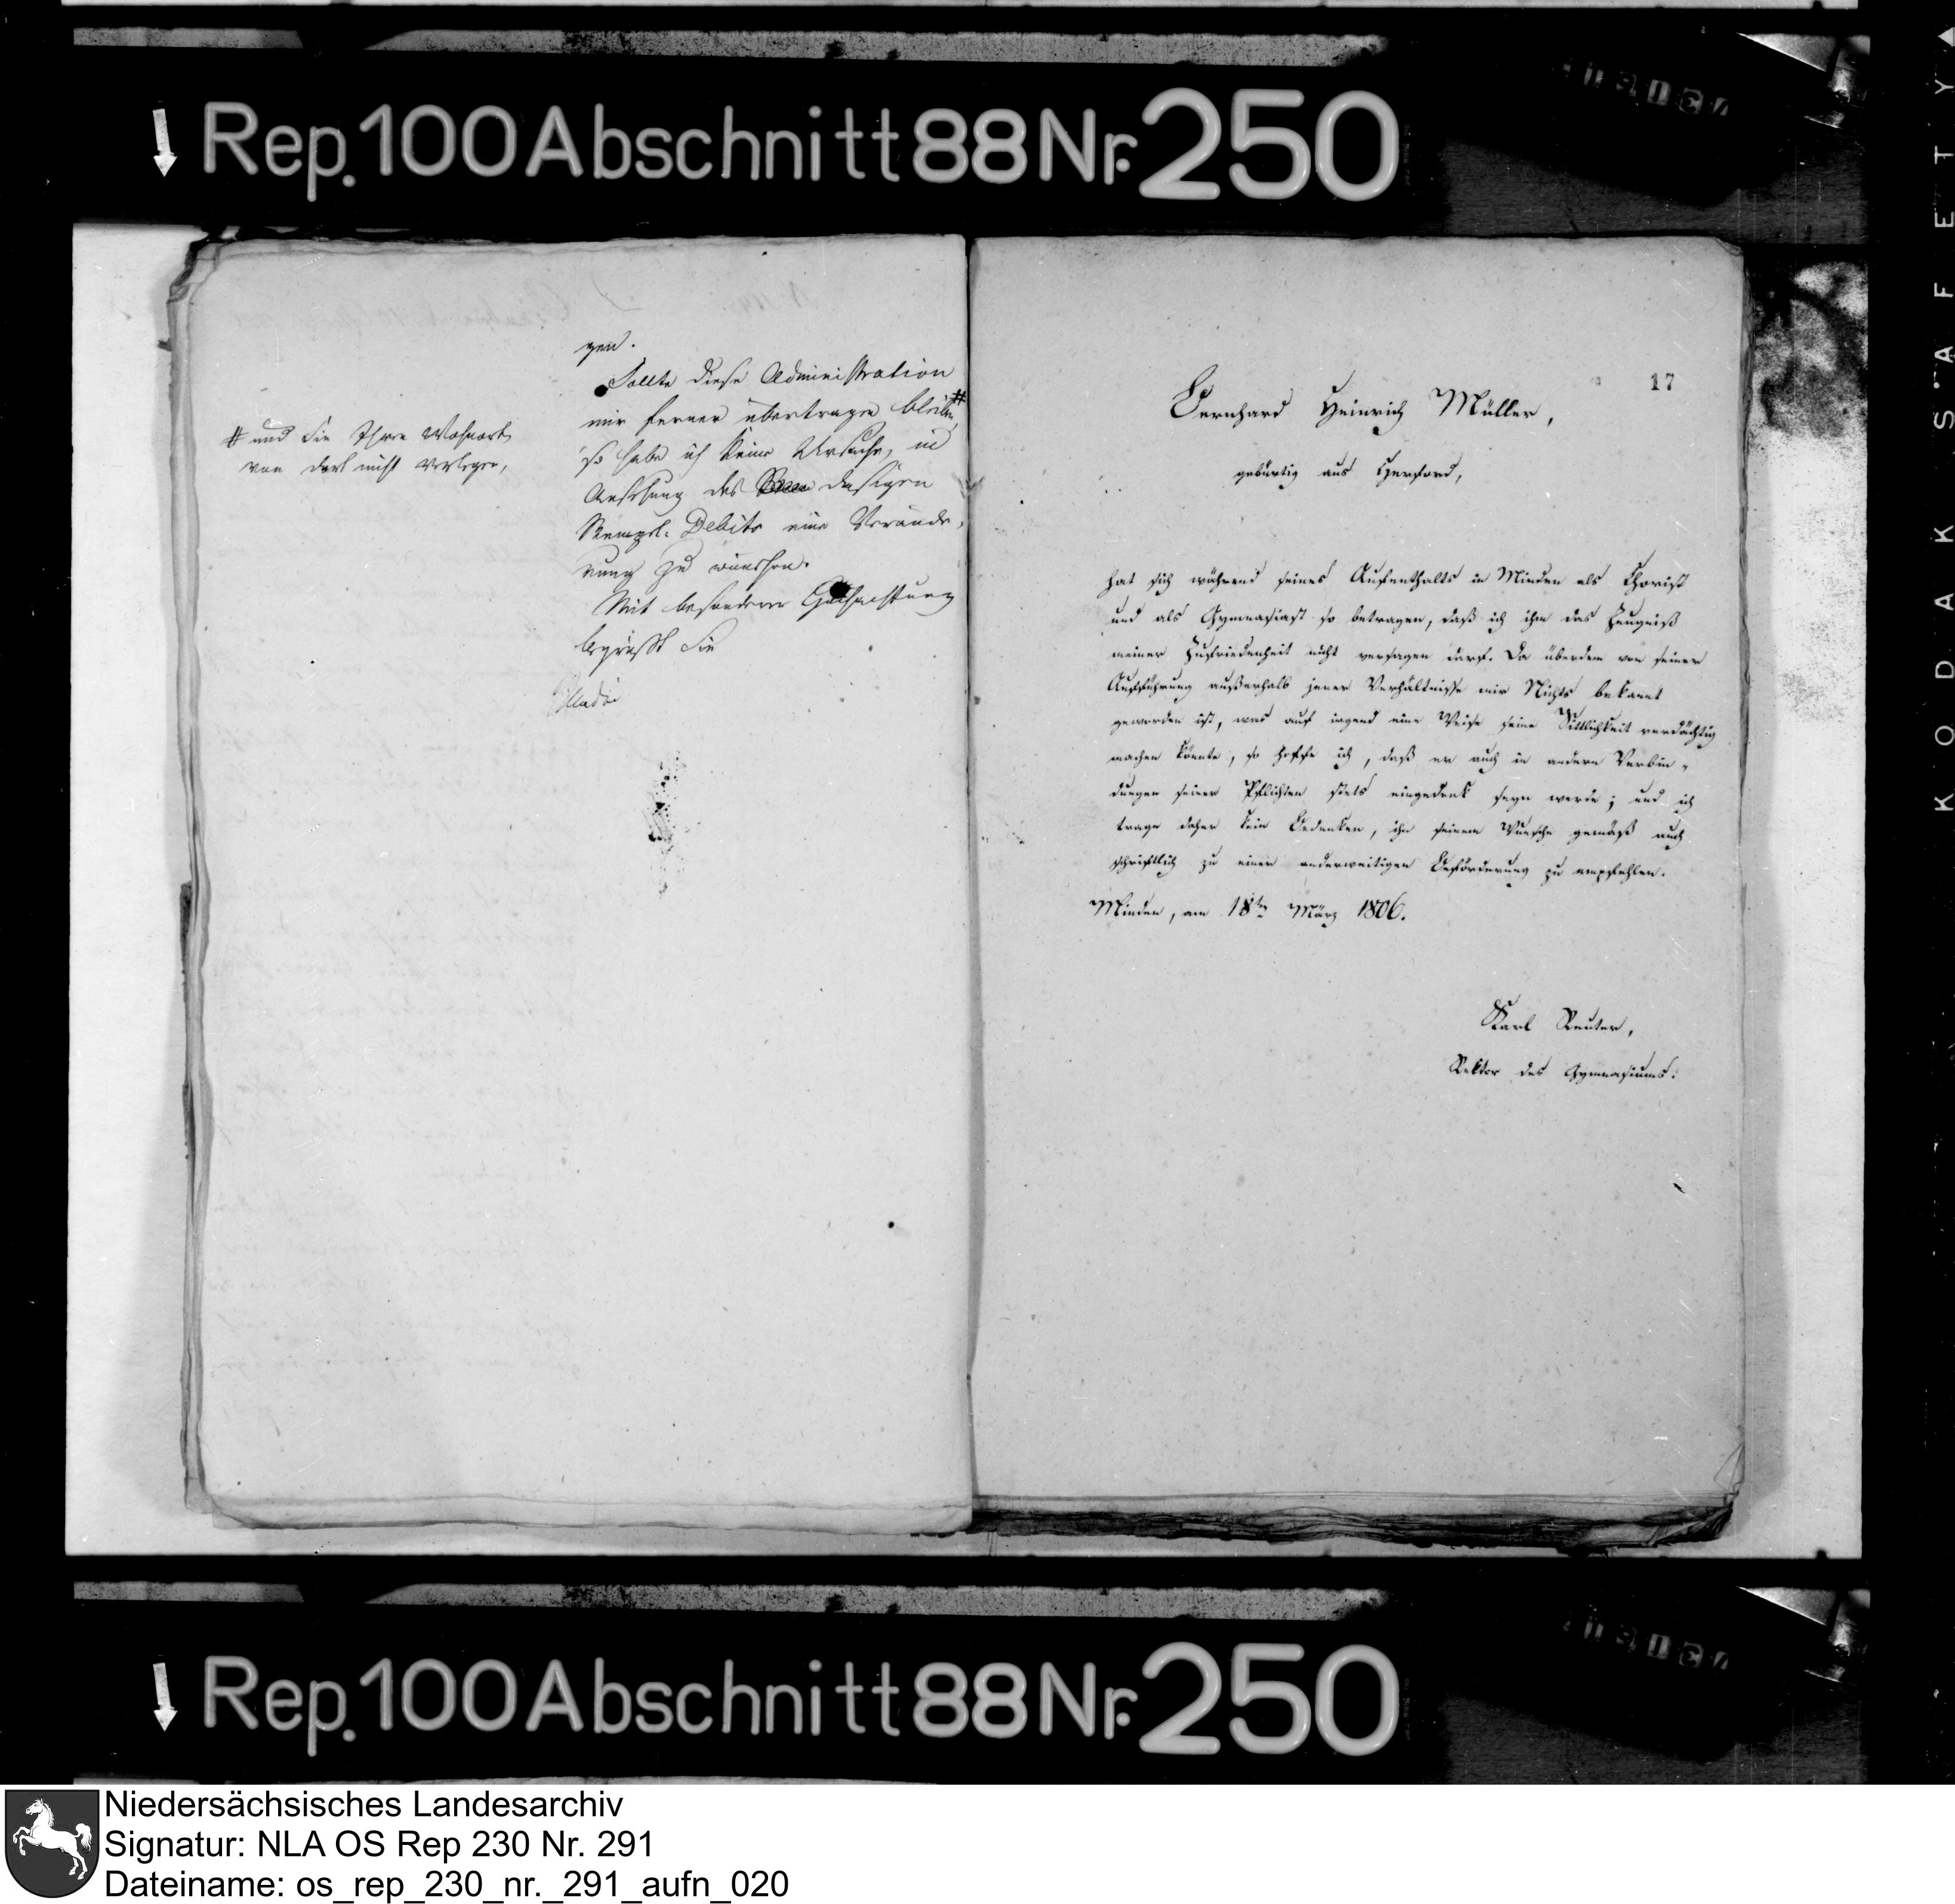 Rep. 100 Abschnitt 88 Nr. 250
gen.
Sollte diese Administration
mir ferner übertragen bleiben #
so habe ich keine Ursache, in
Ansehung des dasigen
Stempel-Debits eine Verände-
rung zu wünschen.
Mit besonderer Hochachtung
begrüßt Sie
# und Sie Ihren Wohnort
von dort nicht verlegen,
17
Bernhard Heinrich Müller,
gebürtig aus Herford,
hat sich während seines Aufenthalts in Minden als Chorist
und als Gymnasiast so betragen, daß ich ihm das Zeugniß
meiner Zufriedenheit nicht versagen darf. Da überdem von seiner
Aufführung außerhalb jener Verhältnisse mir Nichts bekannt
geworden ist, was auf irgend eine Weise seine Sittlichkeit verdächtig
machen könnte, so hoffe ich, daß er auch in andern Verbin-
dungen seiner Pflichten stets eingedenk seyn werde; und ich
trage daher kein Bedenken, ihn seinem Wunsche gemäß auch
schriftlich zu einer anderweitigen Beförderung zu empfehlen.
Minden, am 18ten März 1806.
Karl Reuter,
Rektor des Gymnasiums.
KODAK SAFETY
Rep. 100 Abschnitt 88 Nr. 250
Niedersächsisches Landesarchiv
Signatur: NLA OS Rep 230 Nr. 291
Dateiname: os_rep_230_nr._291_aufn_020